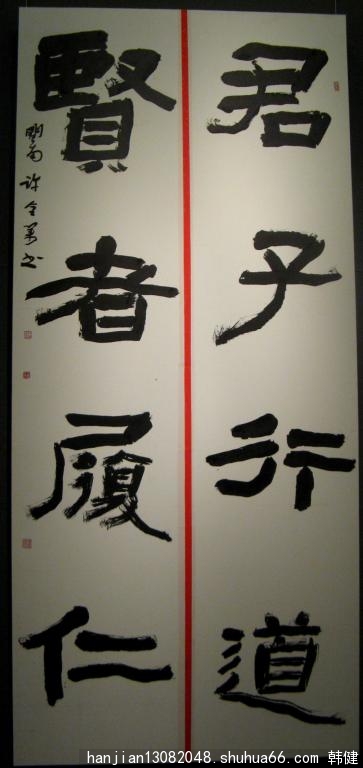 君子行道
賢者履仁
许全万书
hanjian13082048. shuhua66. com 韩健